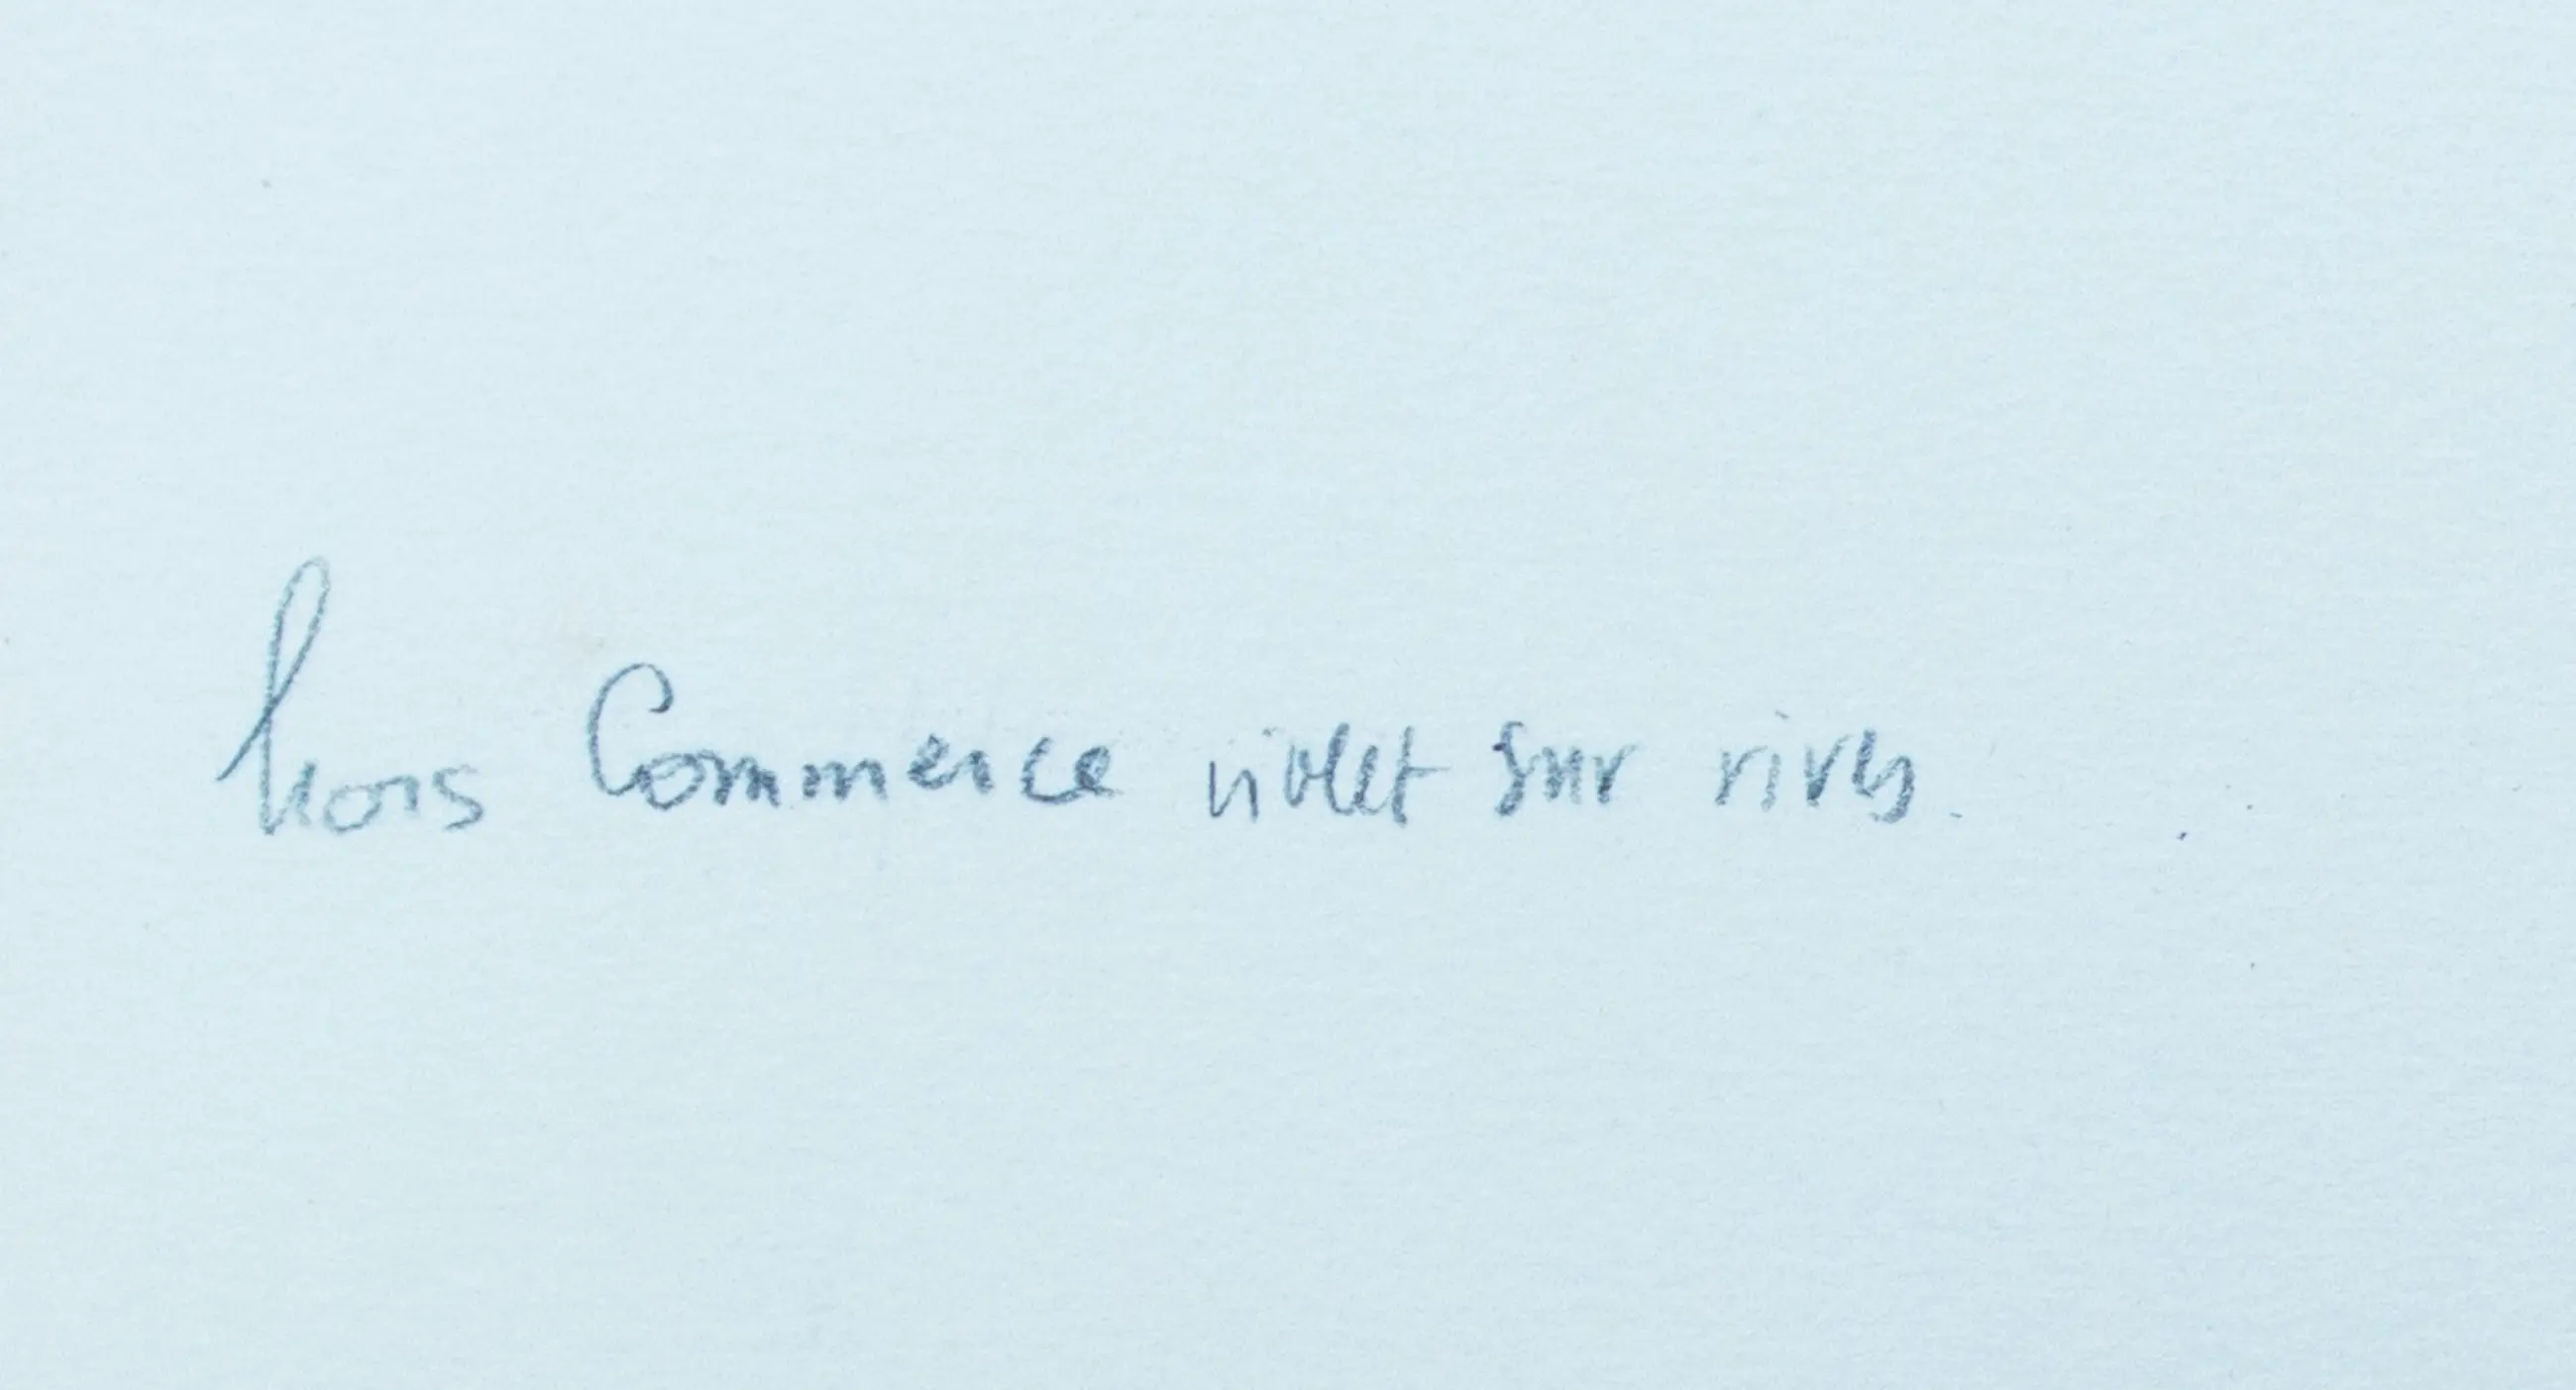 hors Commerce violet sur rives.